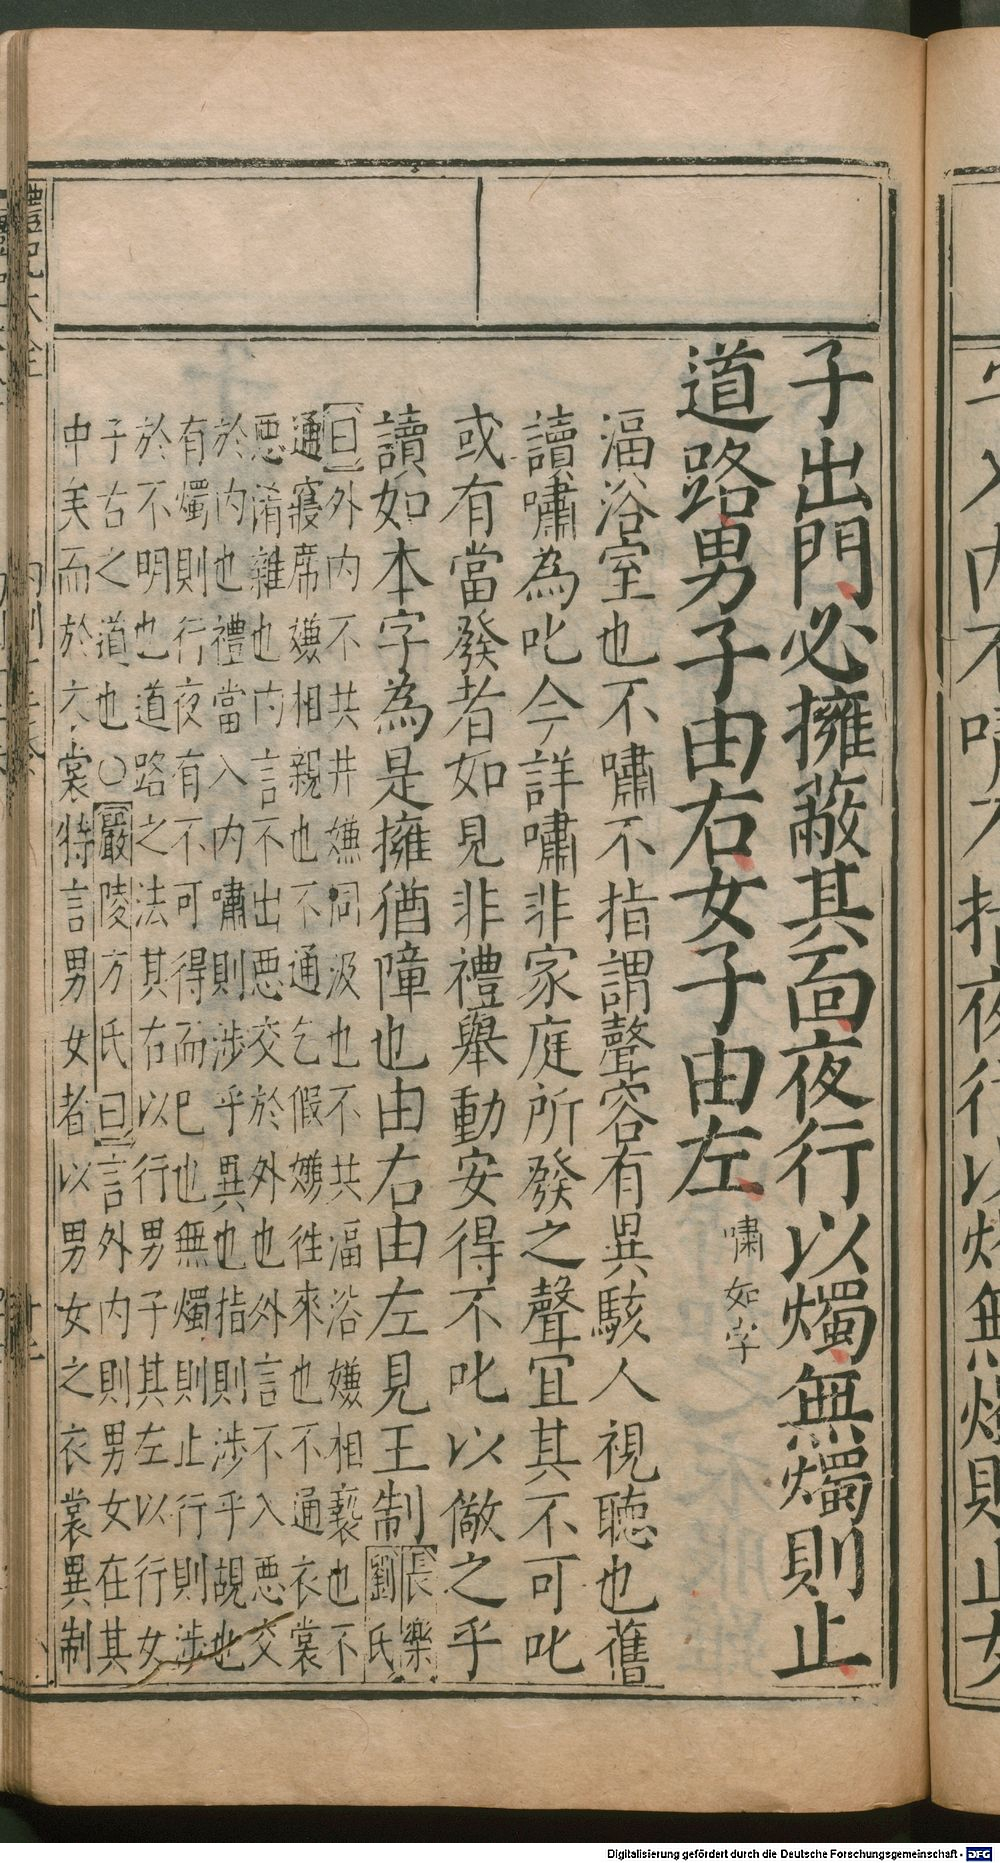 子出門必擁蔽其面夜行以燭無燭則止
道路男子由右女子由左嘯如字
湢浴室也不嘯不指謂聲容有異駭人視聽也舊
讀嘯為叱今詳嘯非家庭所發之聲宜其不可叱
或有當發者如見非禮舉動安得不叱以儆之乎
讀如本字為是擁猶障也由右由左見王制長樂劉氏
曰外内不共井嫌同汲也不共湢浴嫌相褻也不
通寢席嫌相親也不通乞假嫌徃來也不通衣裳
惡淆雜也内言不出惡交於外也外言不入惡交
於内也禮當入内嘯則涉乎異也指則涉乎覘也
有燭則行夜有不可得而已也無燭則止行則涉
於不明也道路之法其右以行男子其左以行女
子古之道也○嚴陵方氏曰言外内則男女在其
中矣而於衣裳特言男女者以男女之衣裳異制
禮記大全
Digitalisierung gefördert durch die Deutsche Forschungsgemeinschaft - DFG